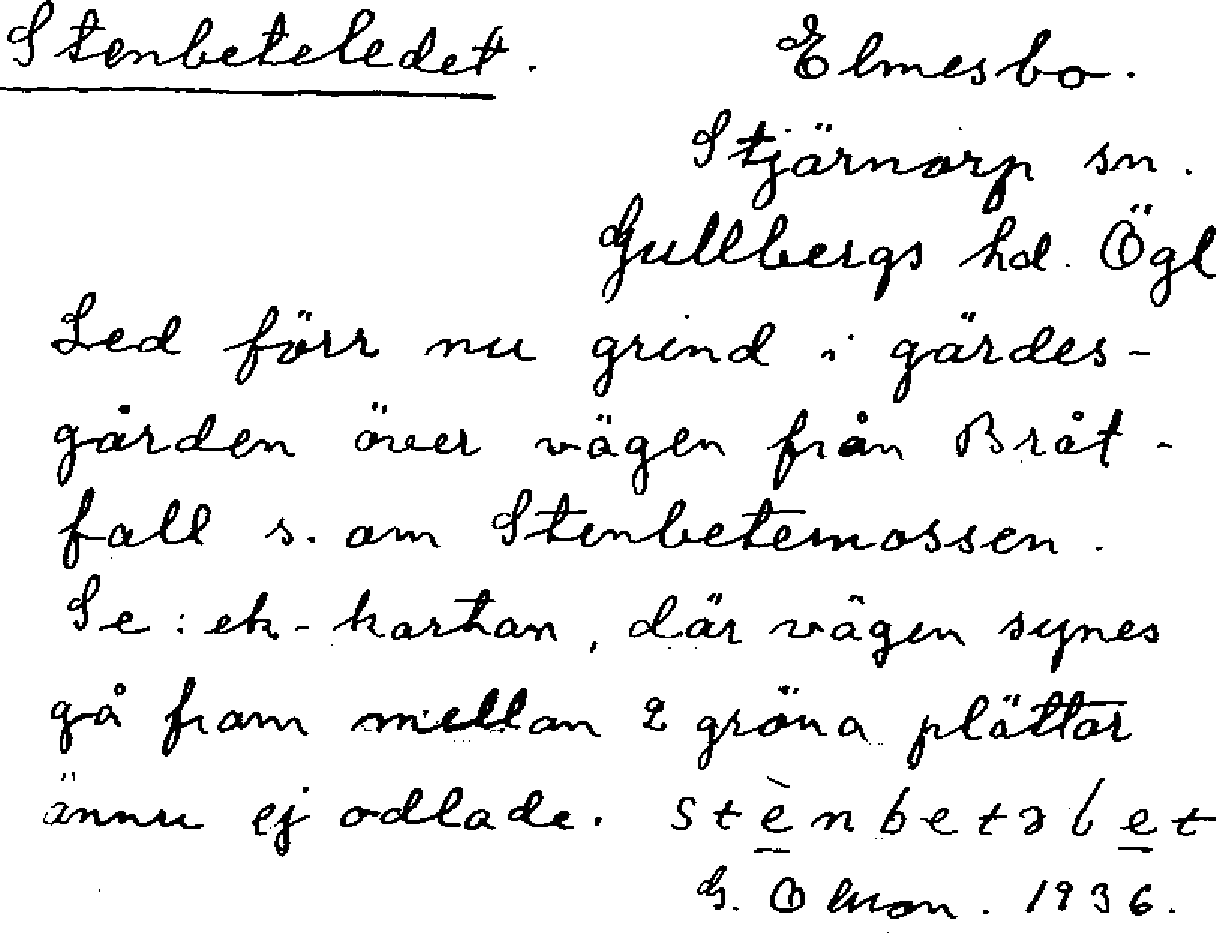 Stenbeteledet. Elmesbo.
Stjärnorp sn.
Gullbergs hd. Ögl
Led förr nu grind i gärdes-
gården över vägen från Bråt-
fall s. om Stenbetemossen.
Se: ek-kartan, där vägen synes
gå fram mellan 2 gröna plättar
ännu ej odlade. stènbetəlet
G. Olsson. 1936.